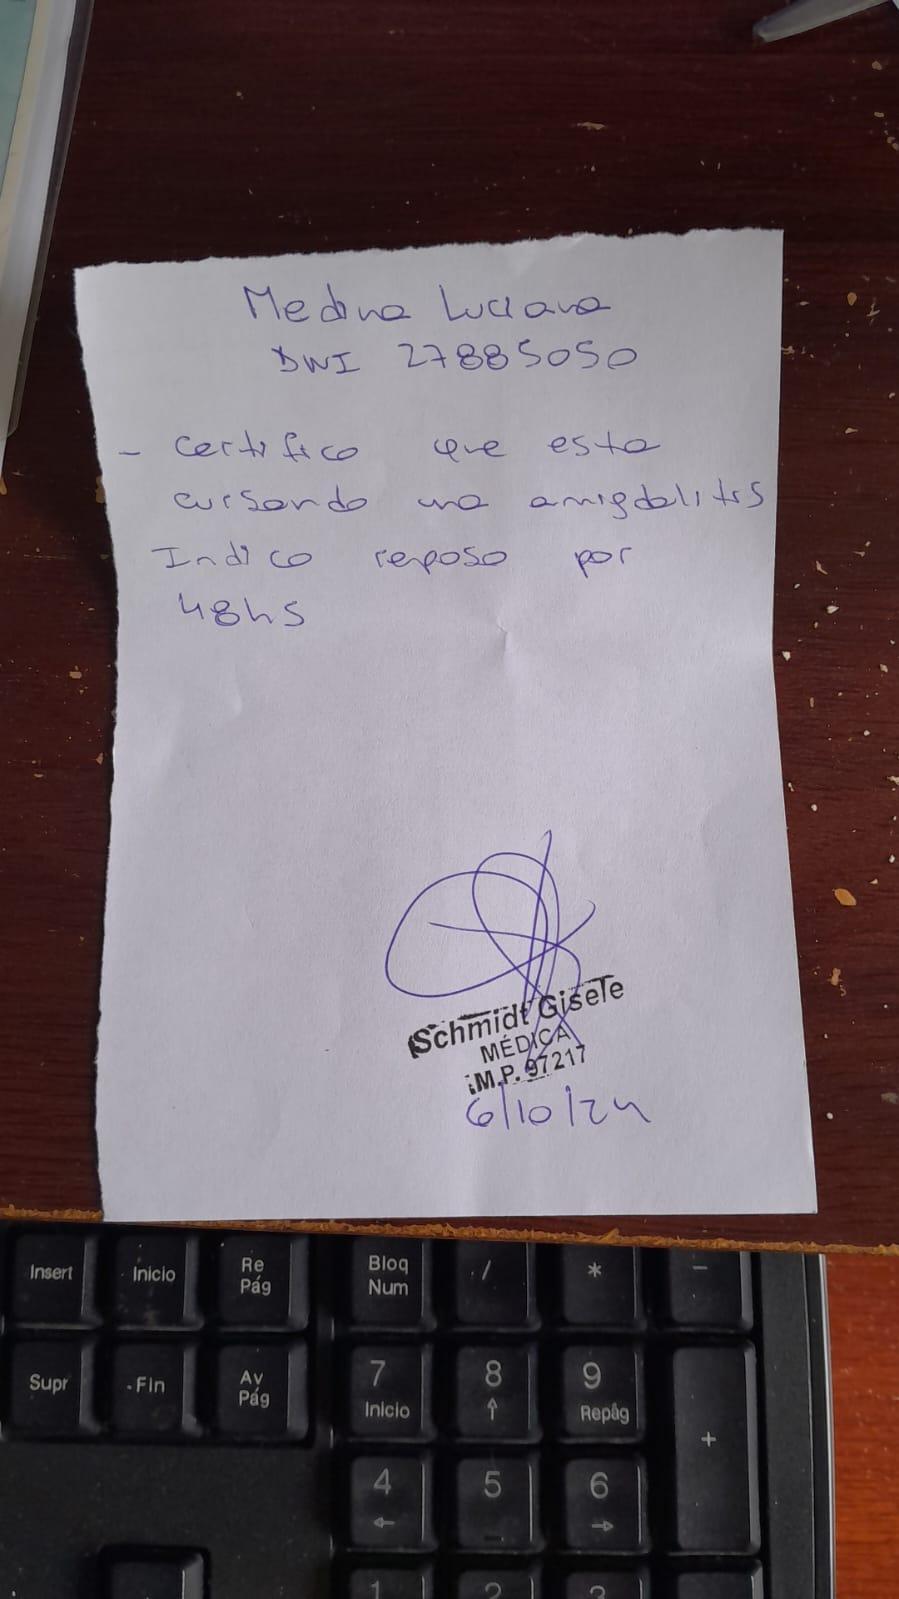 Medina Luciana
DNI 27885050
- Certifico que esta
cursando una amigdalitis
Indico reposo por
48hs
Schmidt Gisele
MÉDICA
M.P. 97217
6/10/24
Insert Inicio Re Pág Bloq Num / * -
Supr Fin Av Pág 7 Inicio 8 ↑ 9 RePág +
4 ← 5 6 →
1 2 3